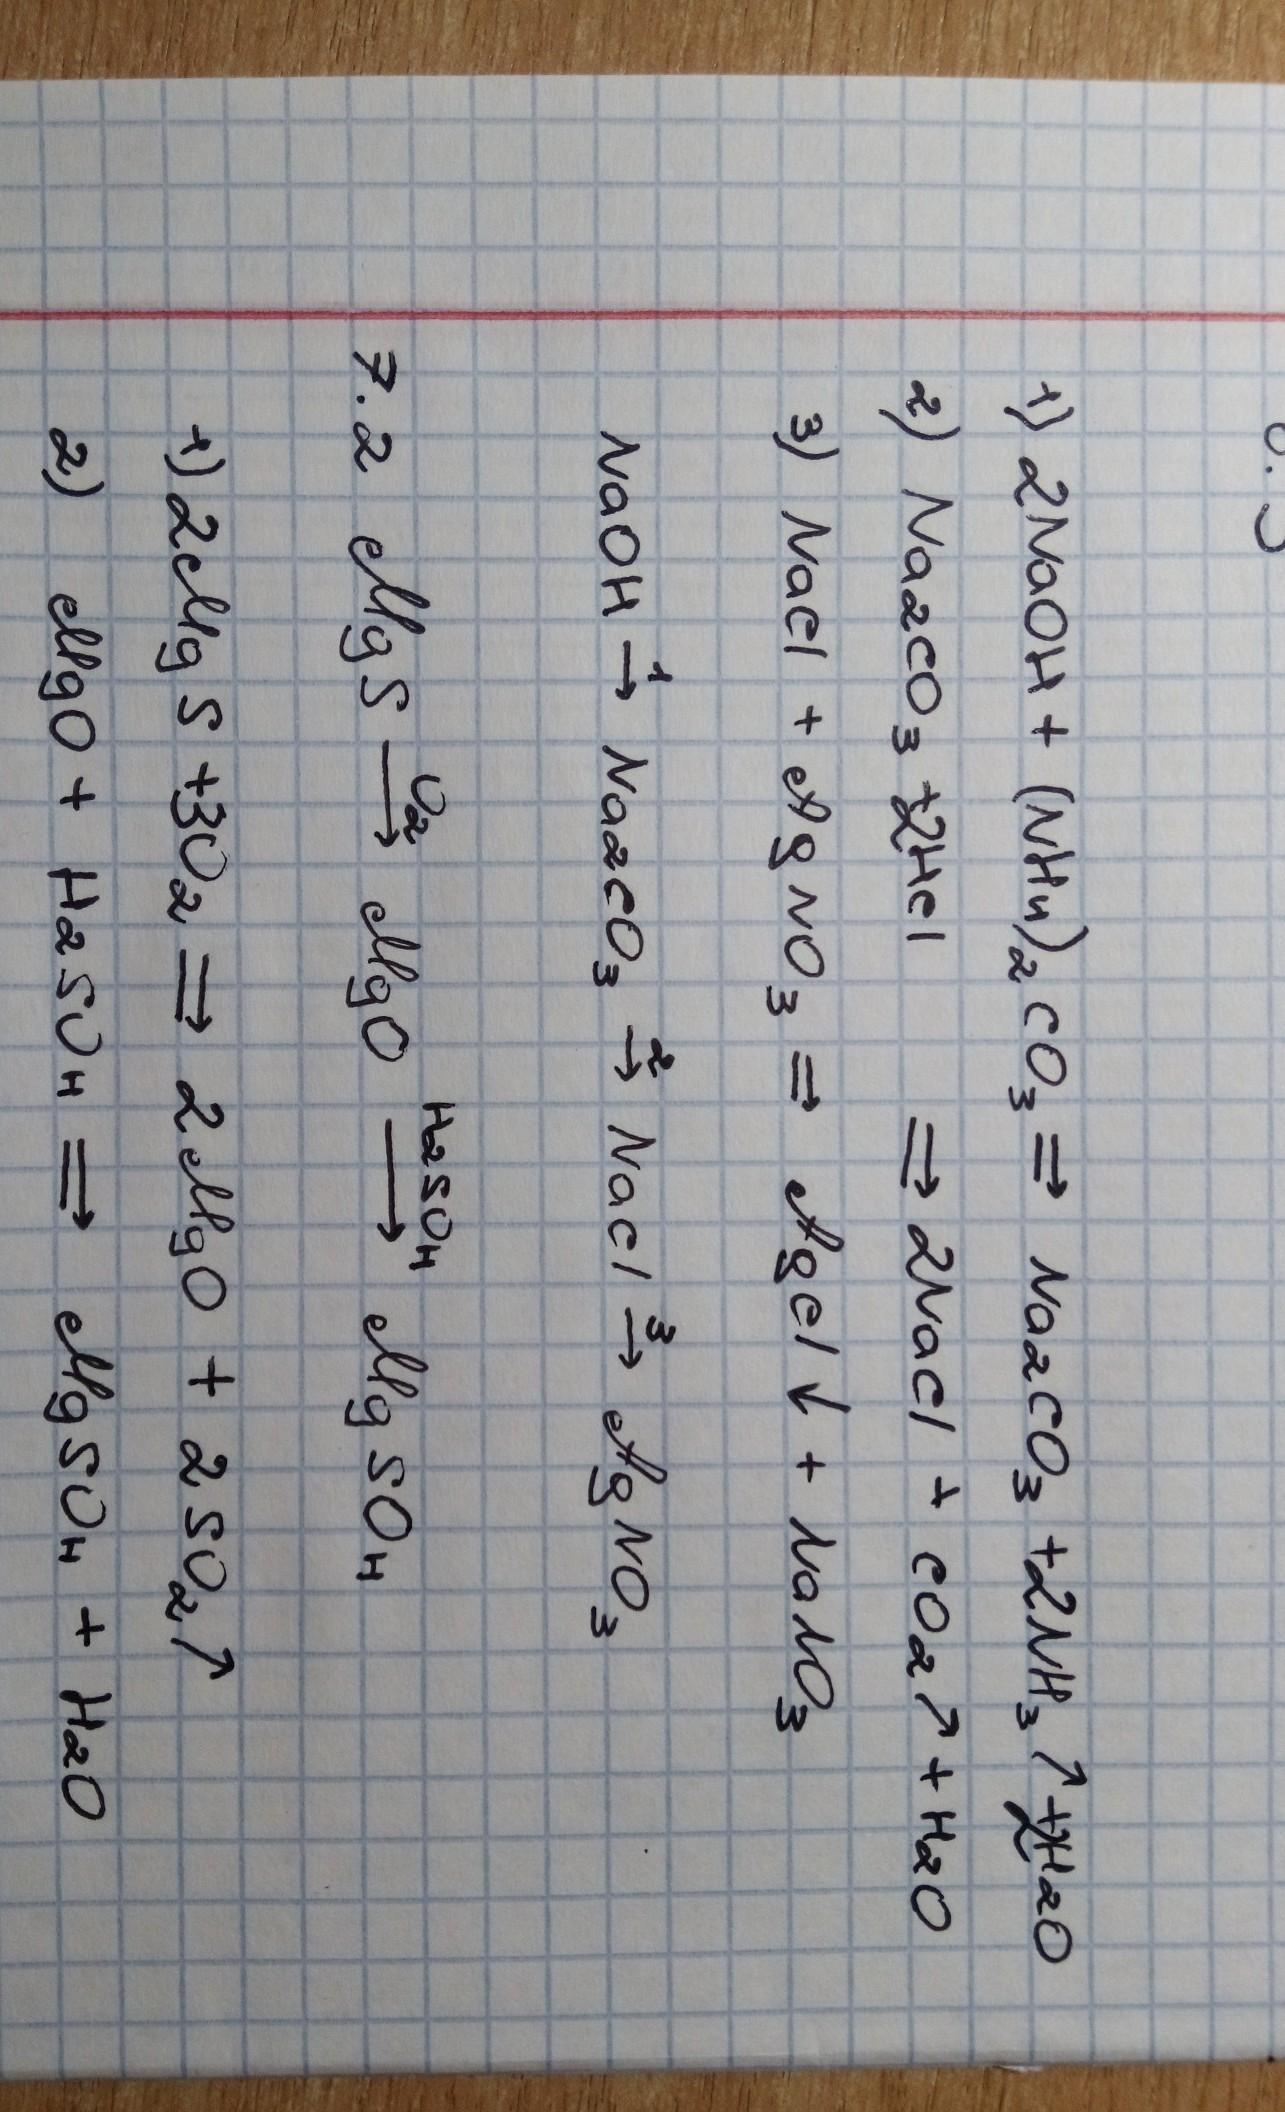 1) 2NaOH + (NH₄)₂CO₃ ⇒ Na₂CO₃ + 2NH₃↑ + 2H₂O
2) Na₂CO₃ + 2HCl ⇒ 2NaCl + CO₂↑ + H₂O
3) NaCl + AgNO₃ ⇒ AgCl↓ + NaNO₃
NaOH →¹ Na₂CO₃ →² NaCl →³ AgNO₃
7.2 MgS →O₂ MgO →H₂SO₄ MgSO₄
1) 2MgS + 3O₂ ⇒ 2MgO + 2SO₂↑
2) MgO + H₂SO₄ ⇒ MgSO₄ + H₂O